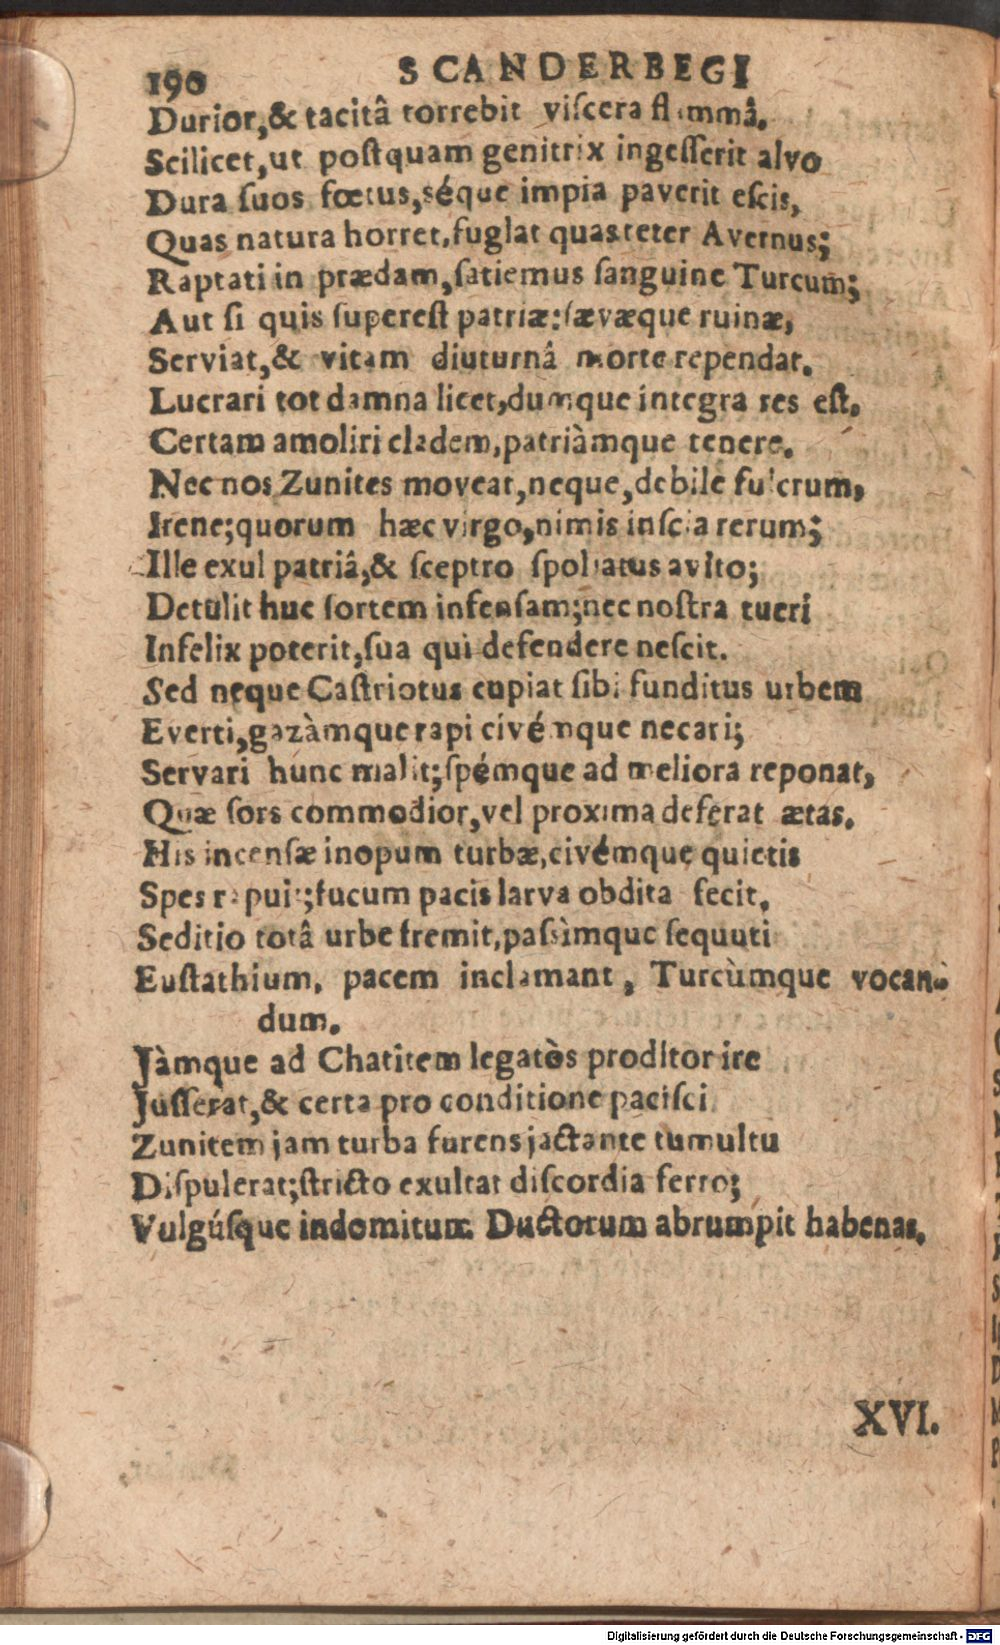 190 SCANDERBEGI
Durior,& tacitâ torrebit viſcera flammâ.
Scilicet,ut poſtquam genitrix ingeſſerit alvo
Dura ſuos fœtus,séque impia paverit eſcis,
Quas natura horret,fugiat quas teter Avernus;
Raptati in prædam,ſatiemus ſanguine Turcum;
Aut ſi quis ſupereſt patriæ:ſævæque ruinæ,
Serviat,& vitam diuturnâ morte rependat.
Lucrari tot damna licet,dumque integra res eſt,
Certam amoliri cladem,patriàmque tenere.
Nec nos Zunites moveat,neque,debile fulcrum,
Irene;quorum hæc virgo,nimis inſcia rerum;
Ille exul patriâ,& ſceptro ſpoliatus avito;
Detulit huc ſortem infenſam;nec noſtra tueri
Infelix poterit,ſua qui defendere neſcit.
Sed neque Caſtriotus cupiat ſibi funditus urbem
Everti,gazàmque rapi civémque necari;
Servari hunc malit;ſpémque ad meliora reponat,
Quæ ſors commodior,vel proxima deferat ætas.
His incenſæ inopum turbæ,civémque quietis
Spes rapuit;fucum pacis larva obdita fecit.
Seditio totâ urbe fremit,paſsìmque ſequuti
Euſtathium, pacem inclamant, Turcùmque vocan-
dum.
Jàmque ad Chatitem legatòs proditor ire
Juſſerat,& certa pro conditione paciſci
Zunitem jam turba furens jactante tumultu
Diſpulerat;ſtricto exultat diſcordia ferro;
Vulgúſque indomitum Ductorum abrumpit habenas.
XVI.
Digitalisierung gefördert durch die Deutsche Forschungsgemeinschaft - DFG